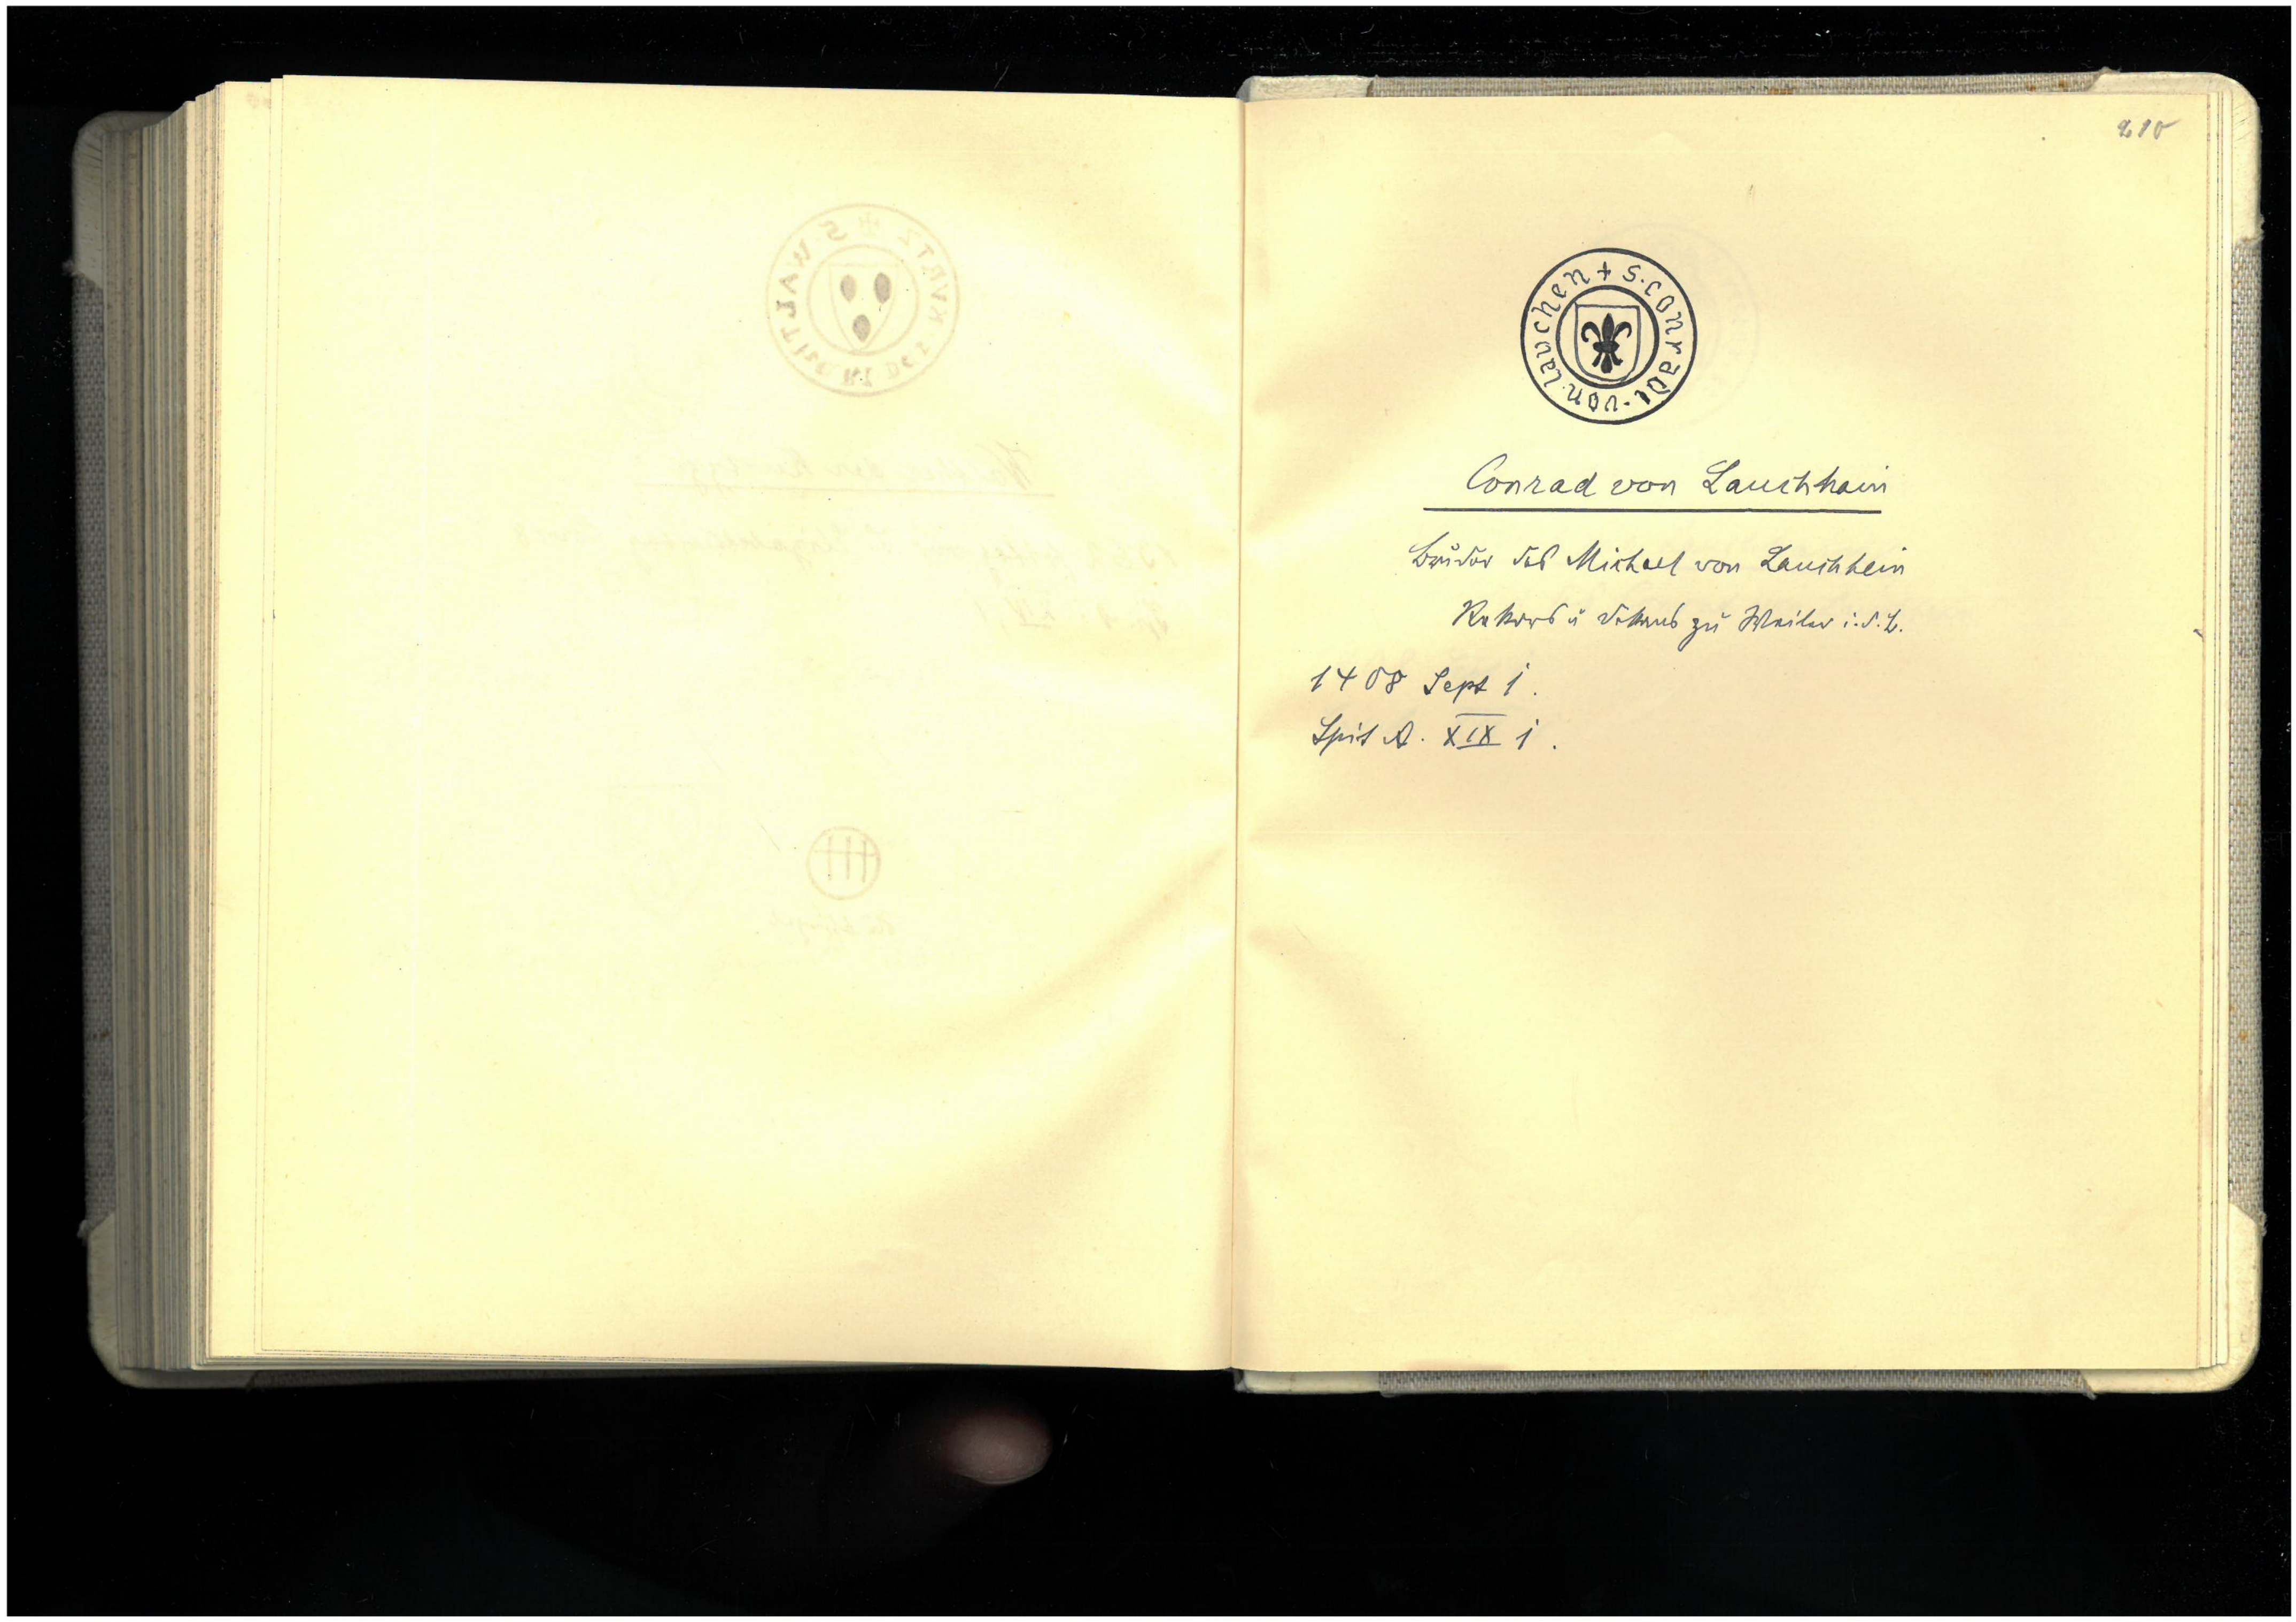 210
+ S. Conradi. von. Lauchen
Conrad von Lauchhain
Bruder des Michael von Lauchhein
Rektors u Dekans zu Weiler i. d. B.
1408 Sept 1.
Spit A. XIX 1.